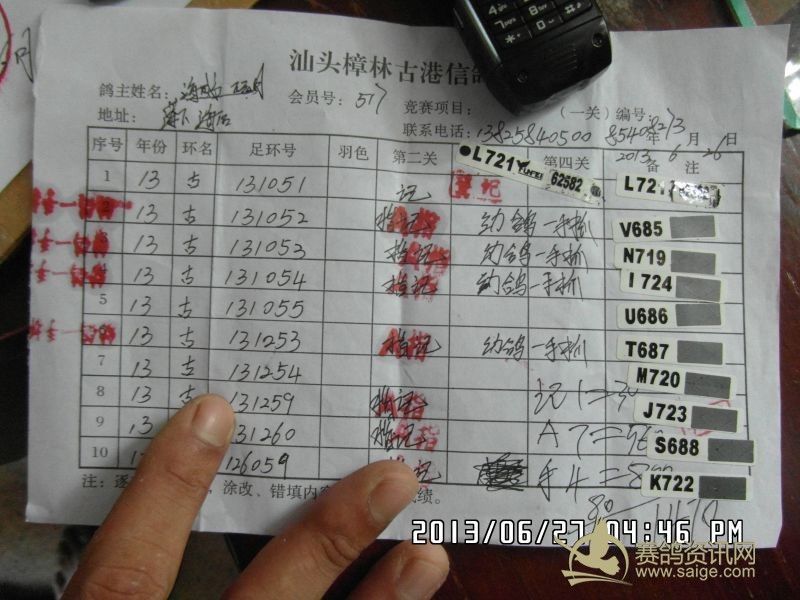 汕头樟林古港信鸽
鸽主姓名: 会员号: 517 竞赛项目: (一关)编号:
地址: 联系电话: 13825840500 85408273
2013年6月26日
序号 年份 环名 足环号 羽色 第二关 第四关 备注
L721 62582
1 13 古 131051 记 L721
2 13 古 131052 指记 幼鸽一手抓 V685
3 13 古 131053 指记 幼鸽一手抓 N719
4 13 古 131054 指记 幼鸽一手抓 I724
5 13 古 131055 U686
6 13 古 131253 指记 幼鸽一手抓 T687
7 13 古 131254 M720
8 13 古 131259 指记 记1= J723
9 13 131260 指记 A7= S688
10 126059 记 手4= K722
注: 涂改、错填内容 成绩。
2013/06/27 04:46 PM
赛鸽资讯网
www.saige.com